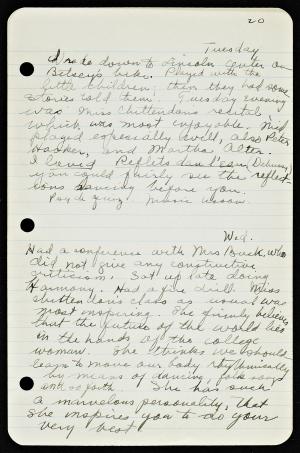 20
Tuesday
I rode down to Lincoln Center on
Betsey's bike. Played with the
little children; then they had some
stories told them. Tuesday evening
was Miss Chittendons recital
which was most enjoyable. Mid
played especially well, also Peter
Hooker, and Martha Alter.
I loved Reflets dan l'eau, Debussy,
you could fairly see the reflect-
ions dancing before you.
Marie
Wed.
Had a conference with Mrs Buck, who
did not give any constructive
criticism. Sat up late doing
Harmony. Had a fire drill. Miss
Chittendons class as usual was
most inspiring. She firmly believes
that the future of the world lies
in the hands of the college
woman. She thinks we should
learn to move our body rhythmically
by means of dancing, folk songs
and so forth. She has such
a marvelous personality, that
she inspires you to do your
very best